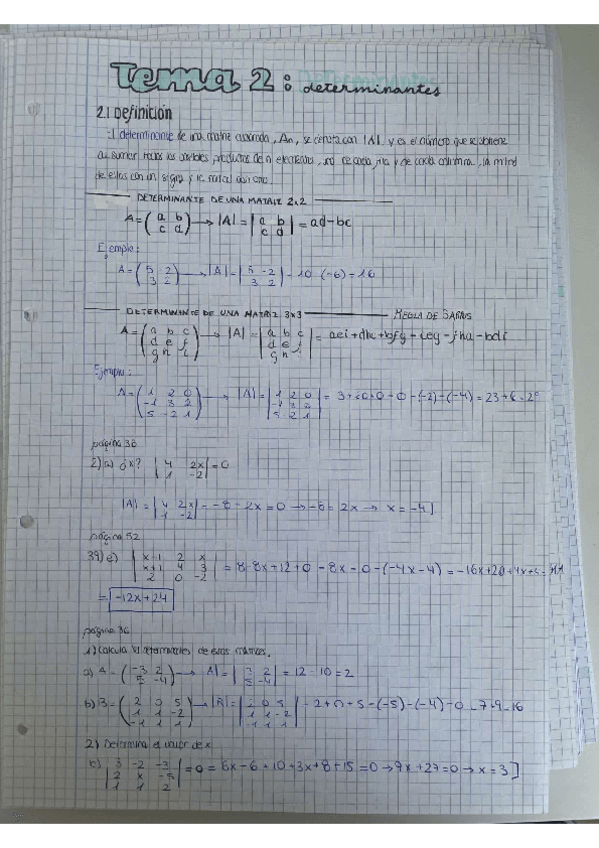 Tema 2: determinantes
2.1 Definición
El determinante de una matriz cuadrada, An, se denota con |A| y es el número que se obtiene
al sumar todos los posibles productos de n elementos, uno de cada fila y de cada columna, la mitad
de ellos con un signo y la mitad con otro.
DETERMINANTE DE UNA MATRIZ 2x2
A = (a b / c d) → |A| = |a b / c d| = ad-bc
Ejemplo:
A = (5 -2 / 3 2) → |A| = |5 -2 / 3 2| = 10-(-6) = 16
DETERMINANTE DE UNA MATRIZ 3x3 REGLA DE SARRUS
A = (a b c / d e f / g h i) → |A| = |a b c / d e f / g h i| = aei + dhc + bfg - ceg - fha - bdi
Ejemplo:
A = (1 2 0 / -1 3 2 / 5 -2 1) → |A| = |1 2 0 / -1 3 2 / 5 -2 1| = 3+20+0-0-(-2)-(-4) = 23+6 = 29
página 36
2) a) ¿x? |4 2x / 1 -2| = 0
|A| = |4 2x / 1 -2| = -8-2x = 0 → -8 = 2x → x = -4]
página 52
39) e) |x+1 2 x / x+1 4 3 / 2 0 -2| = -8x+12+0-8x-0-(-4x-4) = -16x+20+4x+4 =
= -12x+24
página 36
1) Calcula los determinantes de estas matrices.
a) A = (-3 2 / 5 -4) → |A| = |-3 2 / 5 -4| = 12-10 = 2
b) B = (2 0 5 / 1 1 -2 / -1 1 1) → |B| = |2 0 5 / 1 1 -2 / -1 1 1| = 2+0+5-(-5)-(-4)-0 = 7+9 = 16
2) Determina el valor de x
c) |3 -2 -3 / 2 x -5 / 1 1 2| = 0 = 6x-6+10+3x+8+15 = 0 → 9x+27 = 0 → x = 3]